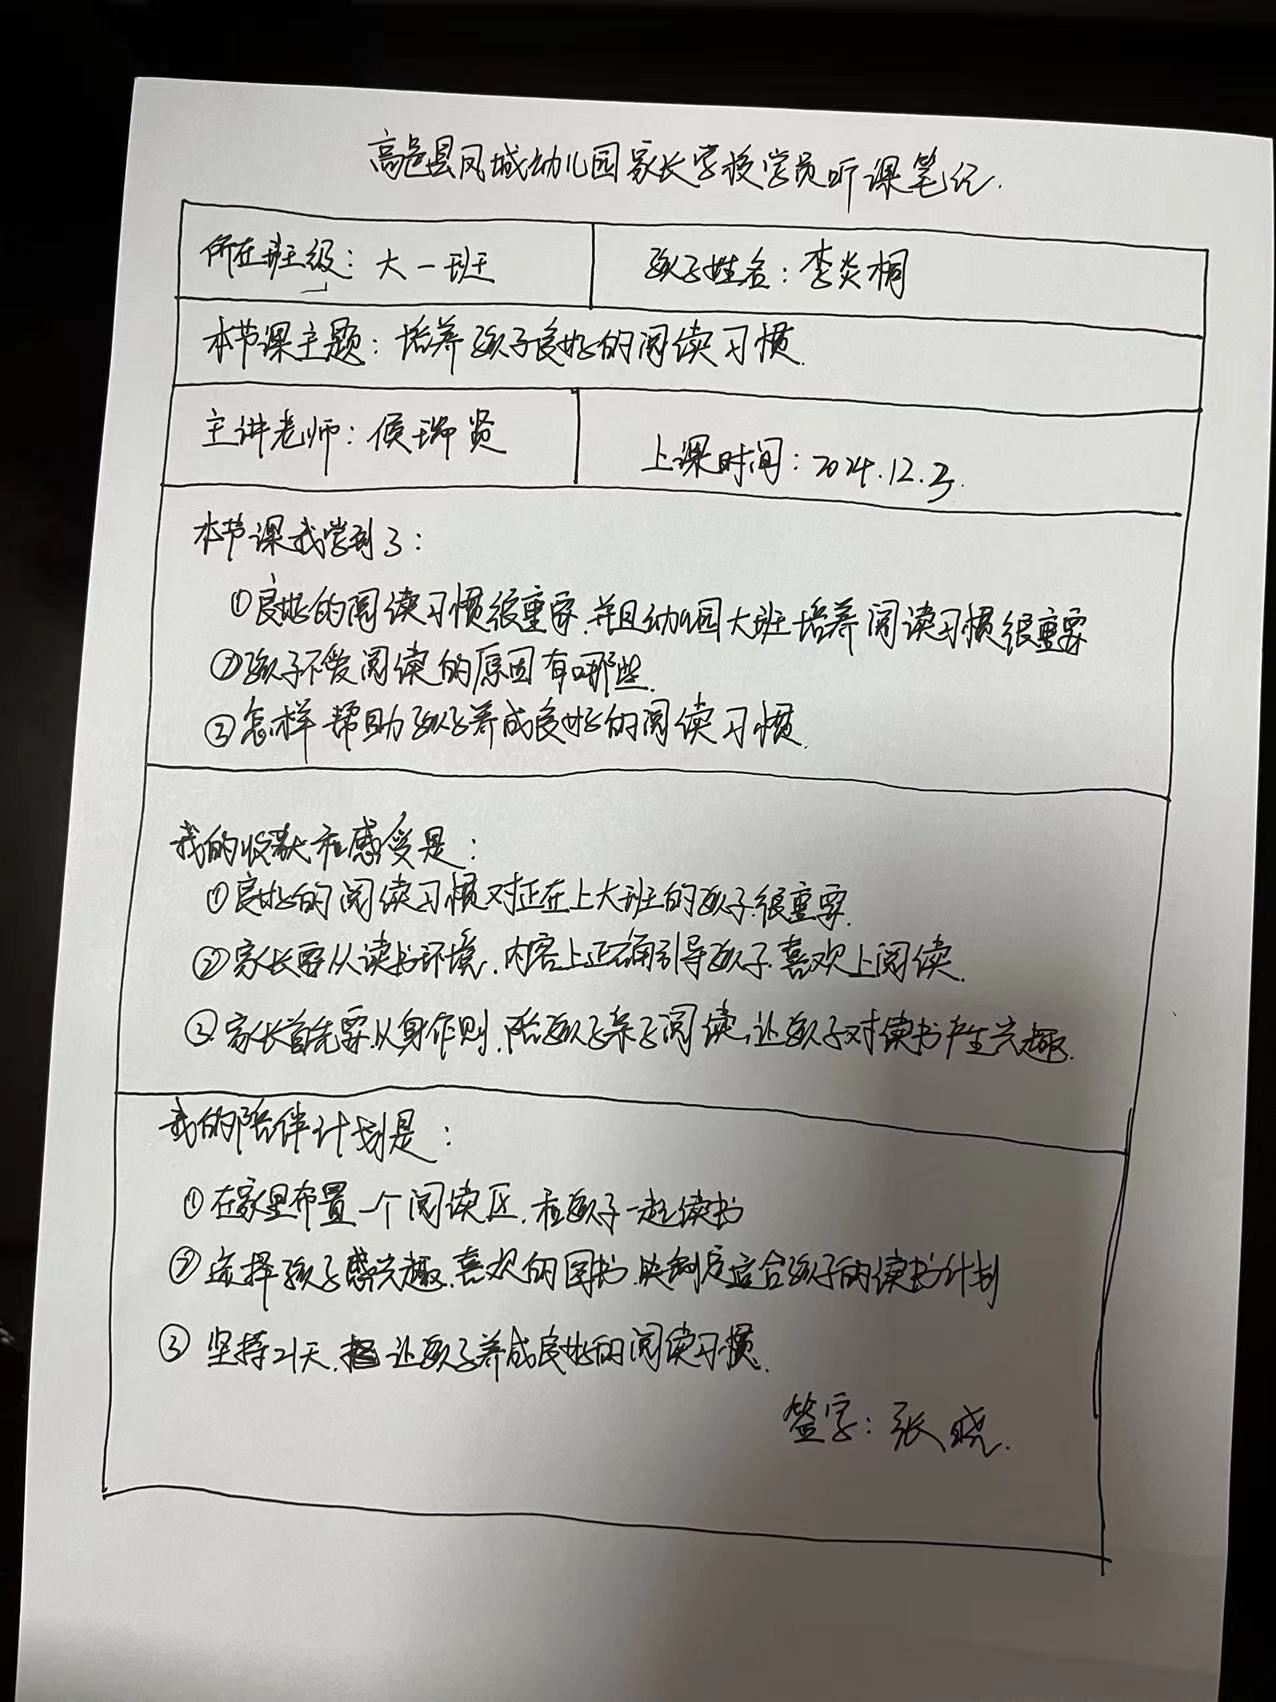 高邑县凤城幼儿园家长学校学员听课笔记.
所在班级：大一班
孩子姓名：李炎桐
本节课主题：培养孩子良好的阅读习惯.
主讲老师：侯瑞贤
上课时间：2024.12.3.
本节课我学到了：
①良好的阅读习惯很重要,并且幼儿园大班培养阅读习惯很重要
②孩子不爱阅读的原因有哪些.
③怎样帮助孩子养成良好的阅读习惯.
我的收获和感受是：
①良好的阅读习惯对正在上大班的孩子很重要.
②家长要从读书环境、内容上正确引导孩子喜欢上阅读.
③家长首先要从身作则,陪孩子亲子阅读,让孩子对读书产生兴趣.
我的陪伴计划是：
①在家里布置一个阅读区,和孩子一起读书
②选择孩子感兴趣、喜欢的图书,制定适合孩子的读书计划
③坚持21天,让孩子养成良好的阅读习惯.
签字：张晓.